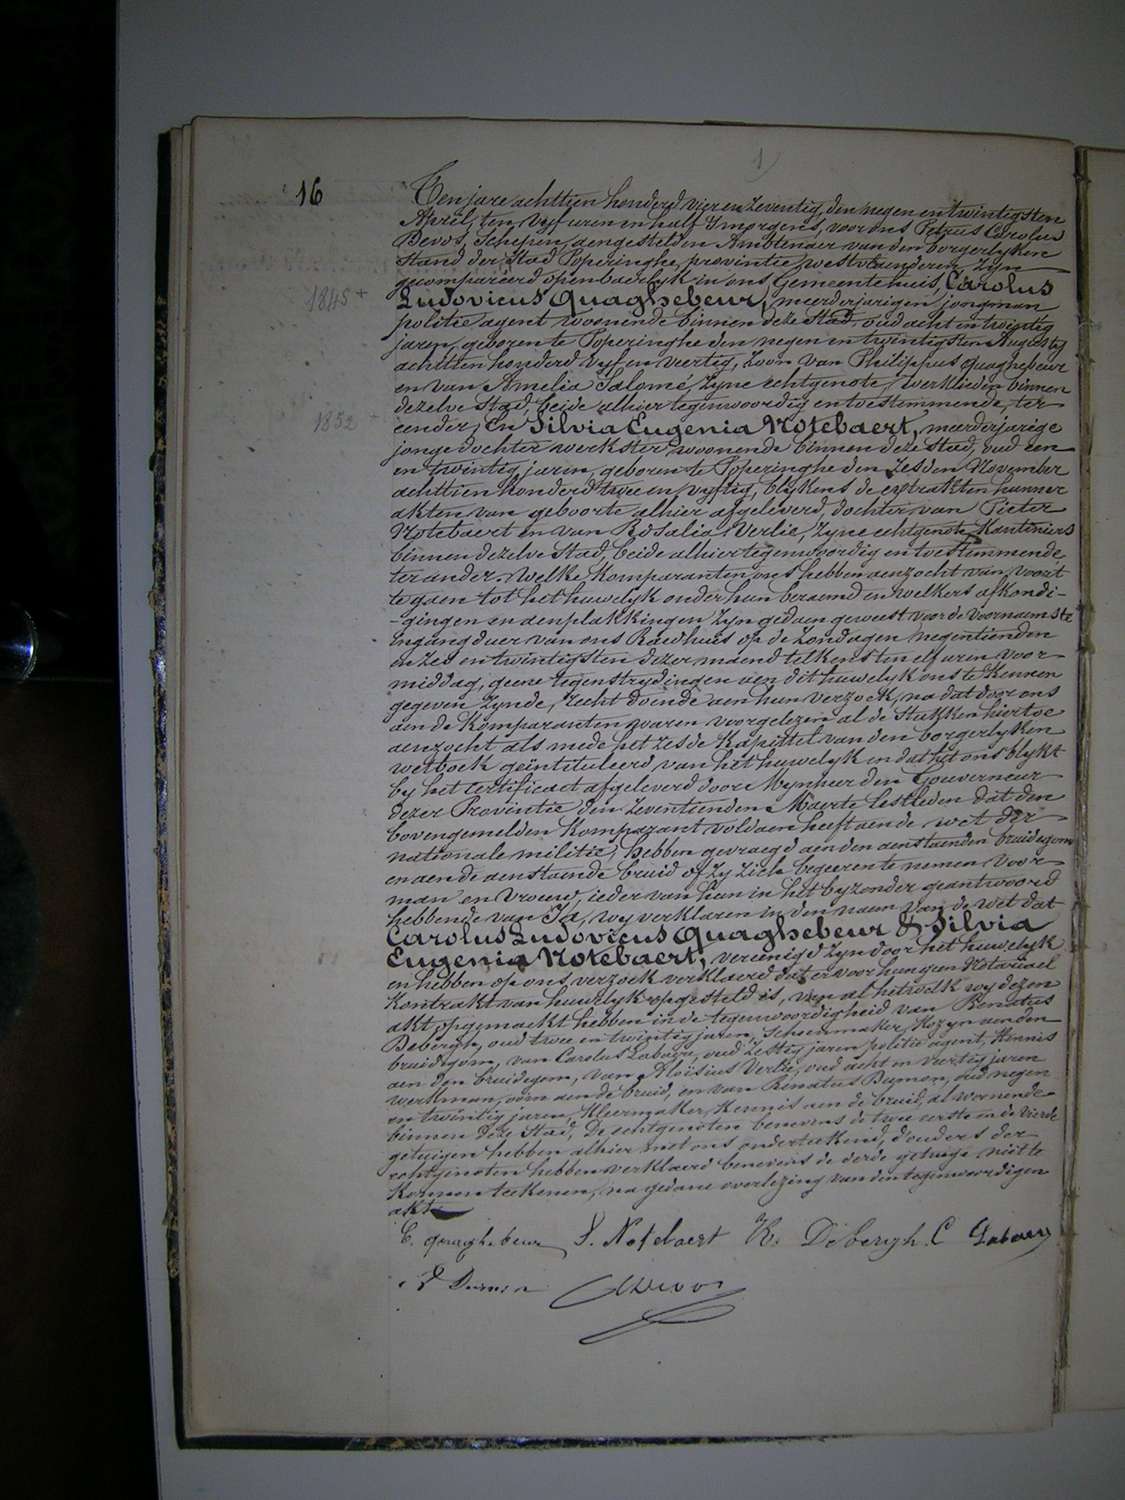 1)
16
Ten jare achttien honderd vier en zeventig, den negen en twintigsten
April, ten vyf uren en half s'morgens, voor ons Petrus Carolus
Devos, Schepen, aengestelden Ambtenaer van den borgerlyken
Stand der Stad Poperinghe, provintie westvlaenderen, zyn
gecompareerd openbaerlyk in ons Gemeentehuis, Carolus
1845 +
Ludovicus Quaghebeur, meerderjarigen jongman
politie agent woonende binnen deze Stad, oud acht en twintig
jaren, geboren te Poperinghe den negen en twintigsten Augusty
achttien honderd vyf en veertig, zoon van Philippus quaghebeur
en van Amelia Salomé, zyne echtgenote, werklieden binnen
dezelve Stad, beide alhier tegenwoordig en toestemmende, ter
1852 +
eender; En Silvia Eugenia Notebaert, meerderjarige
jonge dochter werkster woonende binnen deze Stad, oud een
en twintig jaren, geboren te Poperinghe den zesden November
achttien honderd twee en vyftig, blykens de extrakten hunner
akten van geboorte alhier afgeleverd, dochter van Pieter
Notebaert en van Rosalia Verlie, zyne echtgenote Kantiniers
binnen dezelve Stad, beide alhier tegenwoordig en toestemmende
ter ander. Welke Komparanten ons hebben aenzocht van voort
te gaen tot het huwelyk onder hun beraemd en welkers afkondi-
-gingen en aenplakkingen zyn gedaen geweest voor de voornaemste
ingangdeur van ons Raedhuis op de zondagen negentienden
en zes en twintigsten dezer maend telkens ten elf uren voor
middag, geene tegenstrydingen aen dit huwelyk ons te kennen
gegeven zynde, recht doende aen hun verzoek, na dat door ons
aen de Komparanten waren voorgelezen al de Stukken hiertoe
aenzocht als mede het zesde Kapittel van den borgerlyken
wetboek geïntituleerd, van het huwelyk en dat het ons blykt
by het certificaet afgeleverd door Mynheer den Gouverneur
dezer Provintie den zeventienden Maerte lestleden dat den
bovengemelden Komparant voldaen heeft aen de wet der
nationale militie, hebben gevraegd aen den aenstaenden bruidegom
en aen de aenstaende bruid of zy zich begeeren te nemen voor
man en vrouw, ieder van hun in het byzonder geantwoord
hebbende van Ja, wy verklaren in den naem van de wet dat
Carolus Ludovicus Quaghebeur & Silvia
Eugenia Notebaert, vereenigd zyn door het huwelyk
en hebben op ons verzoek verklaerd dat er voor hun geen Notariael
Kontrakt van huwelyk opgesteld is, van al hetwelk wy dezen
akt opgemaekt hebben in de tegenwoordigheid van Renatus
Debergh, oud twee en twintig jaren, Schoenmaker, Kozyn aen den
bruidegom, van Carolus Labaere, oud zestig jaren politie agent, Kennis
aen den bruidegom, van Aloïsius Verlie, oud acht en veertig jaren
werkman, oom aen de bruid, en van Renatus Dumon, oud negen
en twintig jaren, Kleermaker, Kennis aen de bruid, al woonende
binnen deze Stad, De echtgenoten benevens de twee eerste en de vierde
getuigen hebben alhier met ons onderteekend, d'ouders der
echtgenoten hebben verklaerd benevens de derde getuige niet te
Konnen teekenen, na gedane overlezing van den tegenwoordigen
akt.
C. quaghebeur S. Notebaert R. Debergh. C Labaere
R Dumon CDevos